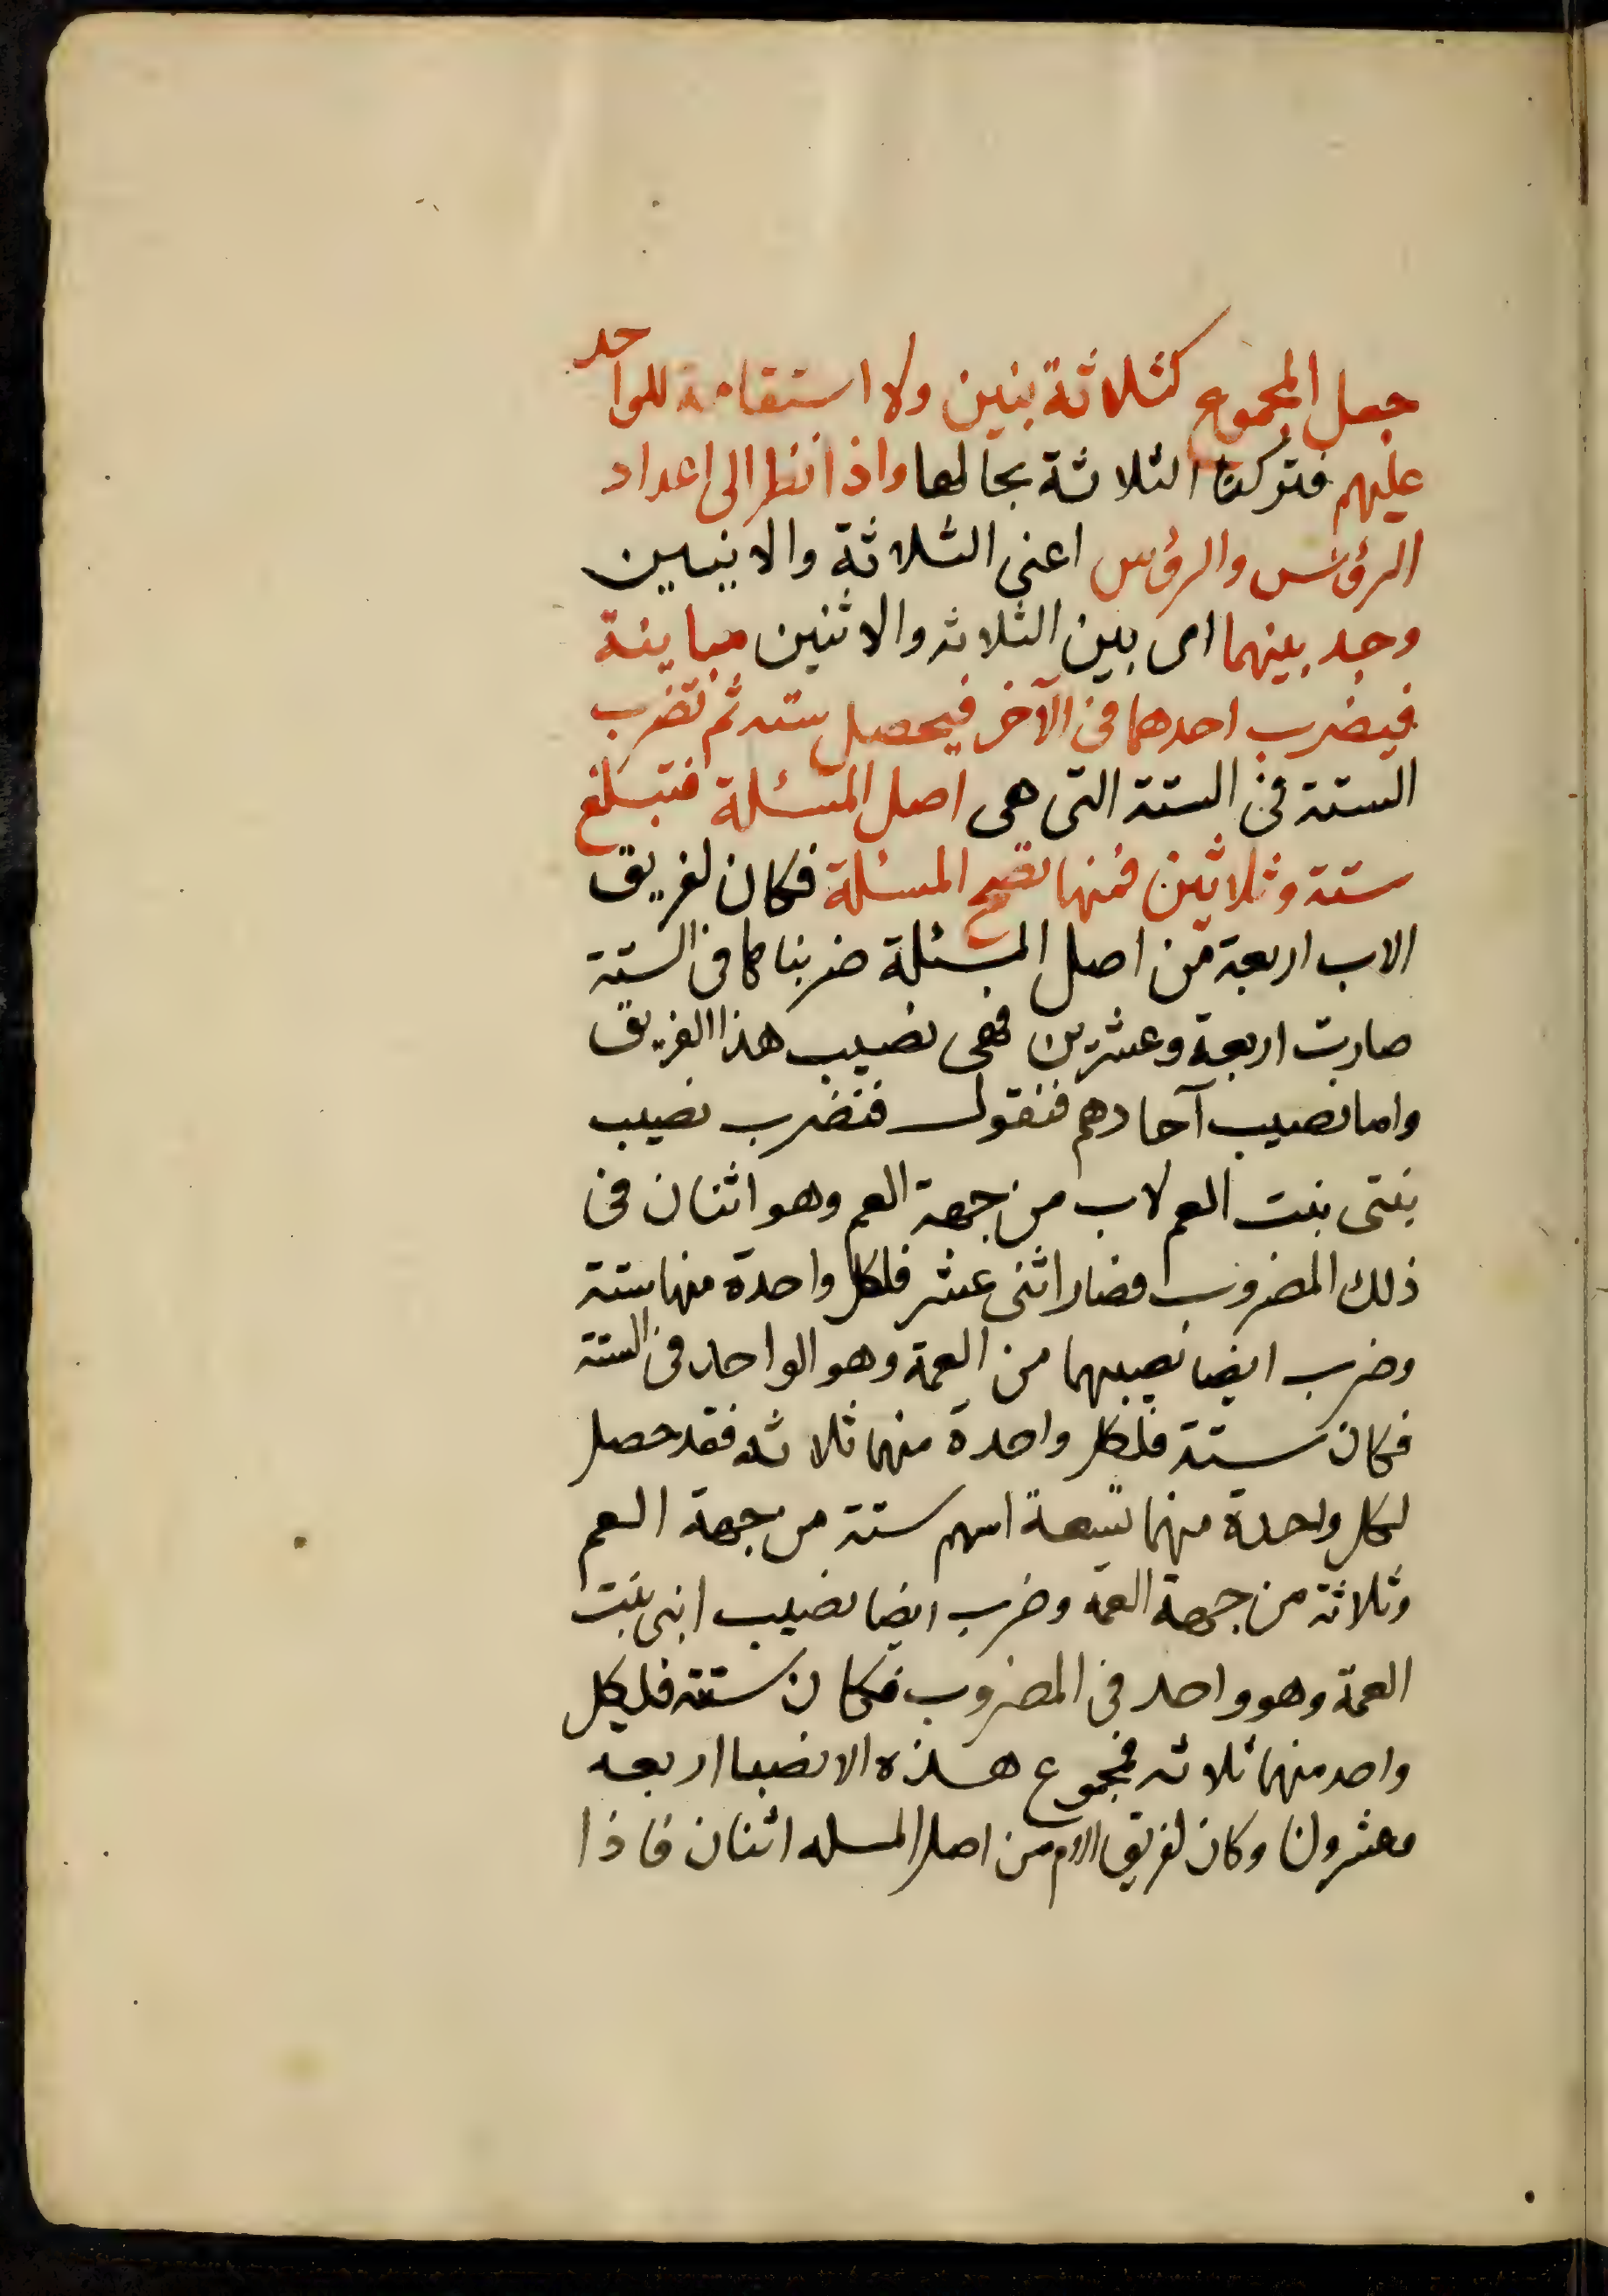 جعل المجموع كثلاثة بنين ولا استقامة للواحد
عليهم فتركنا الثلاثة بحالها واذا نظر الى اعداد
الرؤس والرؤس اعنى الثلاثة والاثنين
وجد بينهما اى بين الثلاثه والاثنين مباينة
فيضرب احدهما فى الآخر فيحصل سته ثم تضرب
الستة فى الستة التى هى اصل المسئلة فتبلغ
ستة وثلاثين فمنها تصح المسئلة فكان لفريق
الاب اربعة من اصل المسئلة ضربناها فى الستة
صارت اربعة وعشرين فهى نصيب هذا الفريق
واما نصيب آحادهم فنقول فنضرب نصيب
بنتى بنت العم لاب من جهة العم وهو اثنان فى
ذلك المضروب فصار اثنى عشر فلكل واحدة منهما ستة
وضرب ايضا نصيبهما من العمة وهو الواحد فى الستة
فكان ستة فلكل واحدة منهما ثلاثه فقد حصل
لكل واحدة منهما تسعة اسهم ستة من جهة العم
وثلاثة من جهة العمة وضرب ايضا نصيب ابنى بنت
العمة وهو واحد فى المضروب فكان ستة فلكل
واحد منهما ثلاثه فمجموع هذه الانصبا اربعه
وعشرون وكان لفريق الام من اصل المسله اثنان فاذا